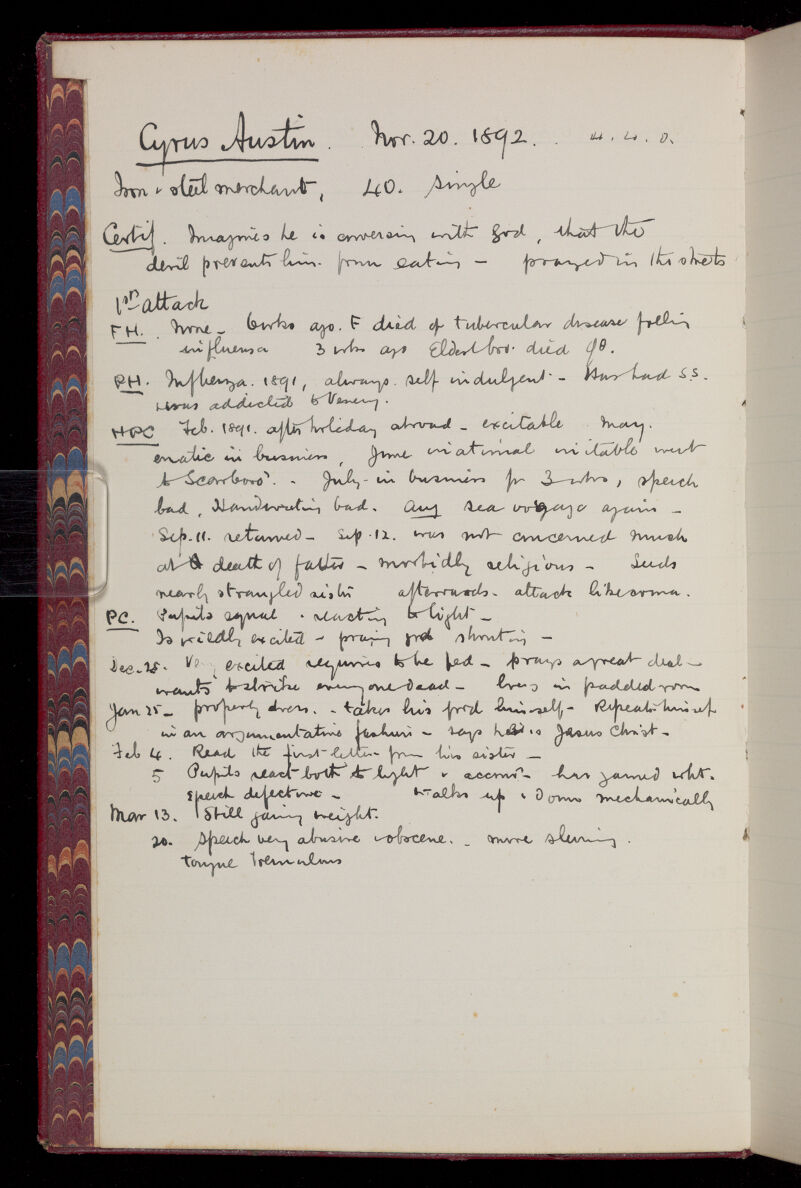 Cyrus Austin. Nov. 20. 1892. . 4. 4. 0.
Iron & steel merchant, 40. single
Certif. Imagines he is conversing with God, that the
devil prevents him from eating – prayed in the streets
1st attack
FH. None – 6 wks ago. F died of tubercular disease follg
influenza 3 wks ago Eldest bro. died
PH. Influenza. 1891, always self indulgent – Has had S.S.
was addicted to Venery.
HPC Feb. 1891. after holiday abroad – excitable May.
erratic in business, June irrational irritable went
to Scarboro'. – July in business for 3 wks, speech
bad, Handwriting bad. Aug sea voyage again –
Sep. 11. returned – Sep. 12. was not concerned much
at death of father – morbidly religious – Leeds
nearly strangled sister afterwards. attack like coma.
PC. Pupils equal . reacting to light –
Is wildly excited – praying and shouting –
Dec. 28. Very excited requires to be fed – prays a great deal –
wants to strike everyone dead – lives in padded room
Jan 25 – properly dress. – takes his food himself – Repeats himself
in an argumentative fashion – says he is Jesus Christ –
Feb 4. Read the first letter from his sister –
5 Pupils react both to light & accom – has gained wht.
Speech defective – walks up & down mechanically
Mar 13. Still gaining weight.
20. Speech very abusive & obscene. – more slurring.
tongue tremulous